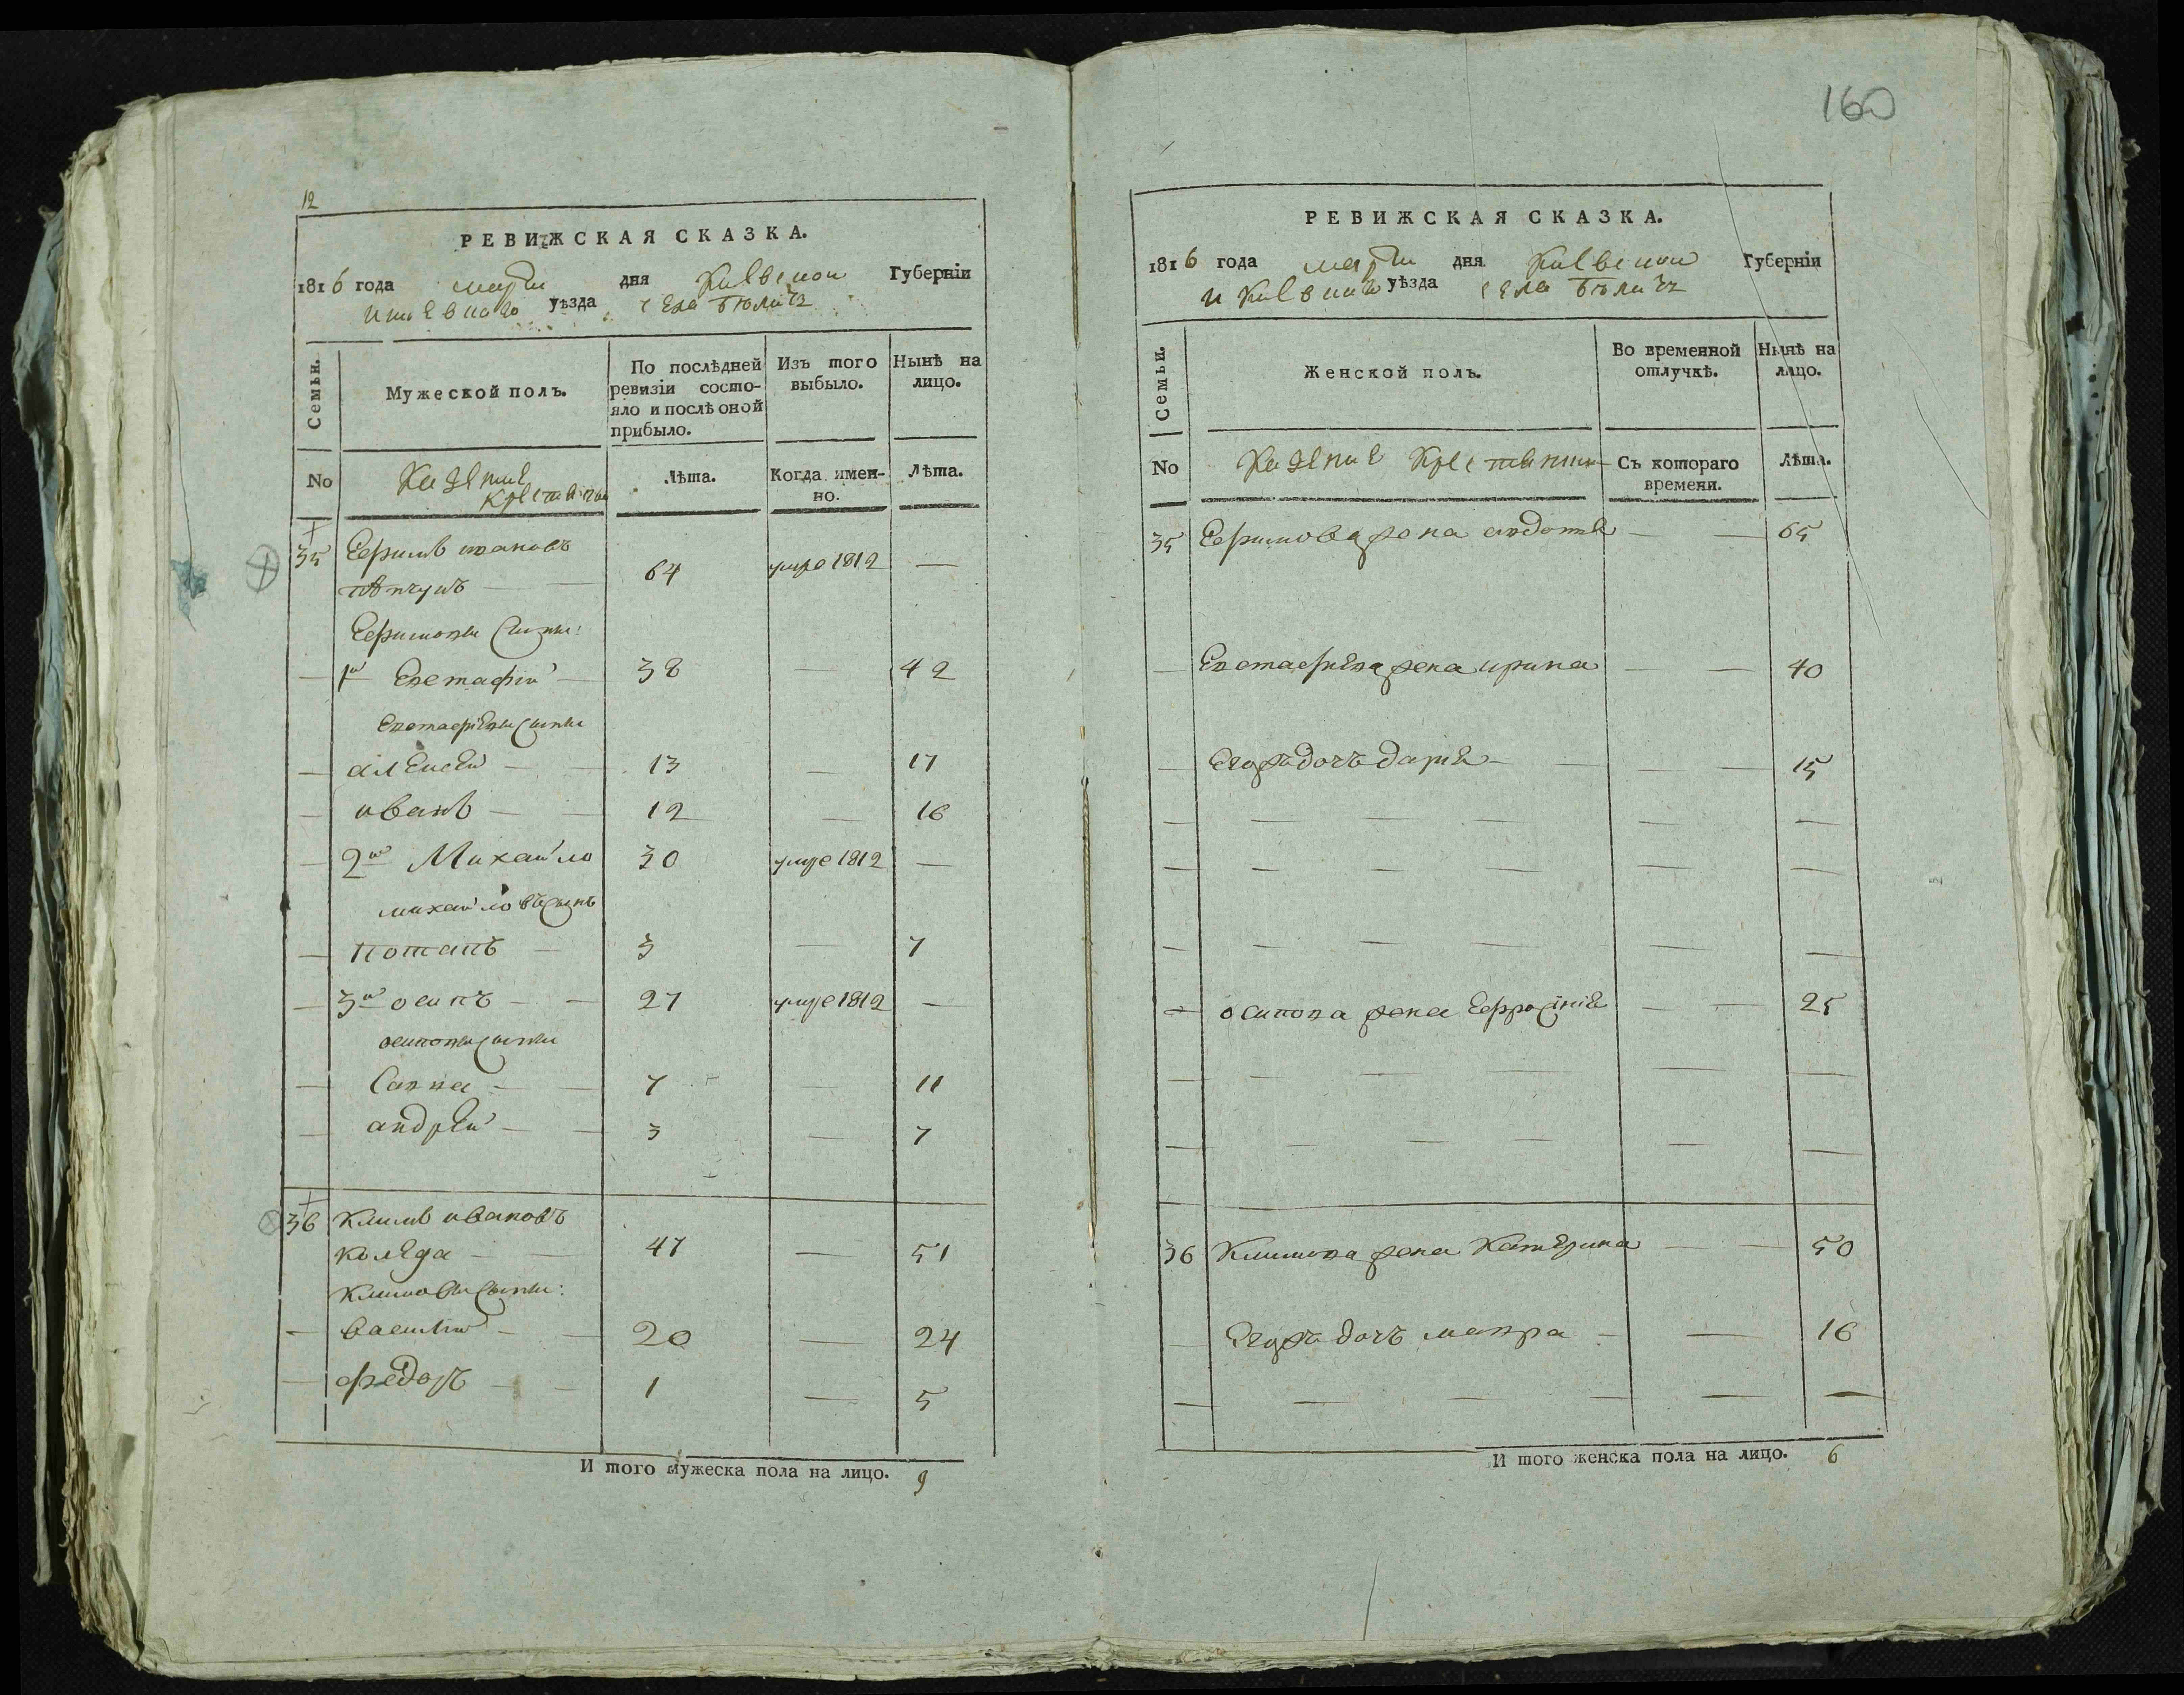 160
12
РЕВИЖСКАЯ СКАЗКА.
1816 года марта дня Киевской Губерніи
и Киевскаго уѣзда села Бѣличъ
Семьи.
Мужеской полъ.
По послѣдней ревизіи состо-
яло и послѣ оной
прибыло.
Изъ того
выбыло.
Нынѣ на
лицо.
No
Казенние
крестьяни
Лѣта.
Когда имен-
но.
Лѣта.
35 Ефимъ
64 умре 1812 —
Ефимовы сыны:
— 1й Евстафій — 38 — 42
Евстафіевы сыны
— алексей — 13 — 17
— иванъ — 12 — 16
— 2й Михайло 30 умре 1812 —
михайловъ сынъ
— потапъ — 3 — 7
— 3й осипъ — 27 умре 1812 —
осиповы сыны
— Савка — 7 — 11
— андрей — 3 — 7
36 Климъ ивановъ
коледа — 47 — 51
Климовы сыны:
— василій — 20 — 24
— федоръ — 1 — 5
И того мужеска пола на лицо. 9
РЕВИЖСКАЯ СКАЗКА.
1816 года марта дня Киевской Губерніи
и Киевскаго уѣзда села Бѣличъ
Семьи.
Женской полъ.
Во временной
отлучкѣ.
Нынѣ на
лицо.
No
Казенние крестьянки
Съ котораго
времени.
Лѣта.
35 Ефимова жена авдотя — 65
— Евстафиева жена ирина — 40
— Егожъ дочь дария — 15
— осипова жена Ефросиния — 25
36 Климова жена Катерина — 50
Егожъ дочь мавра — 16
И того женска пола на лицо. 6